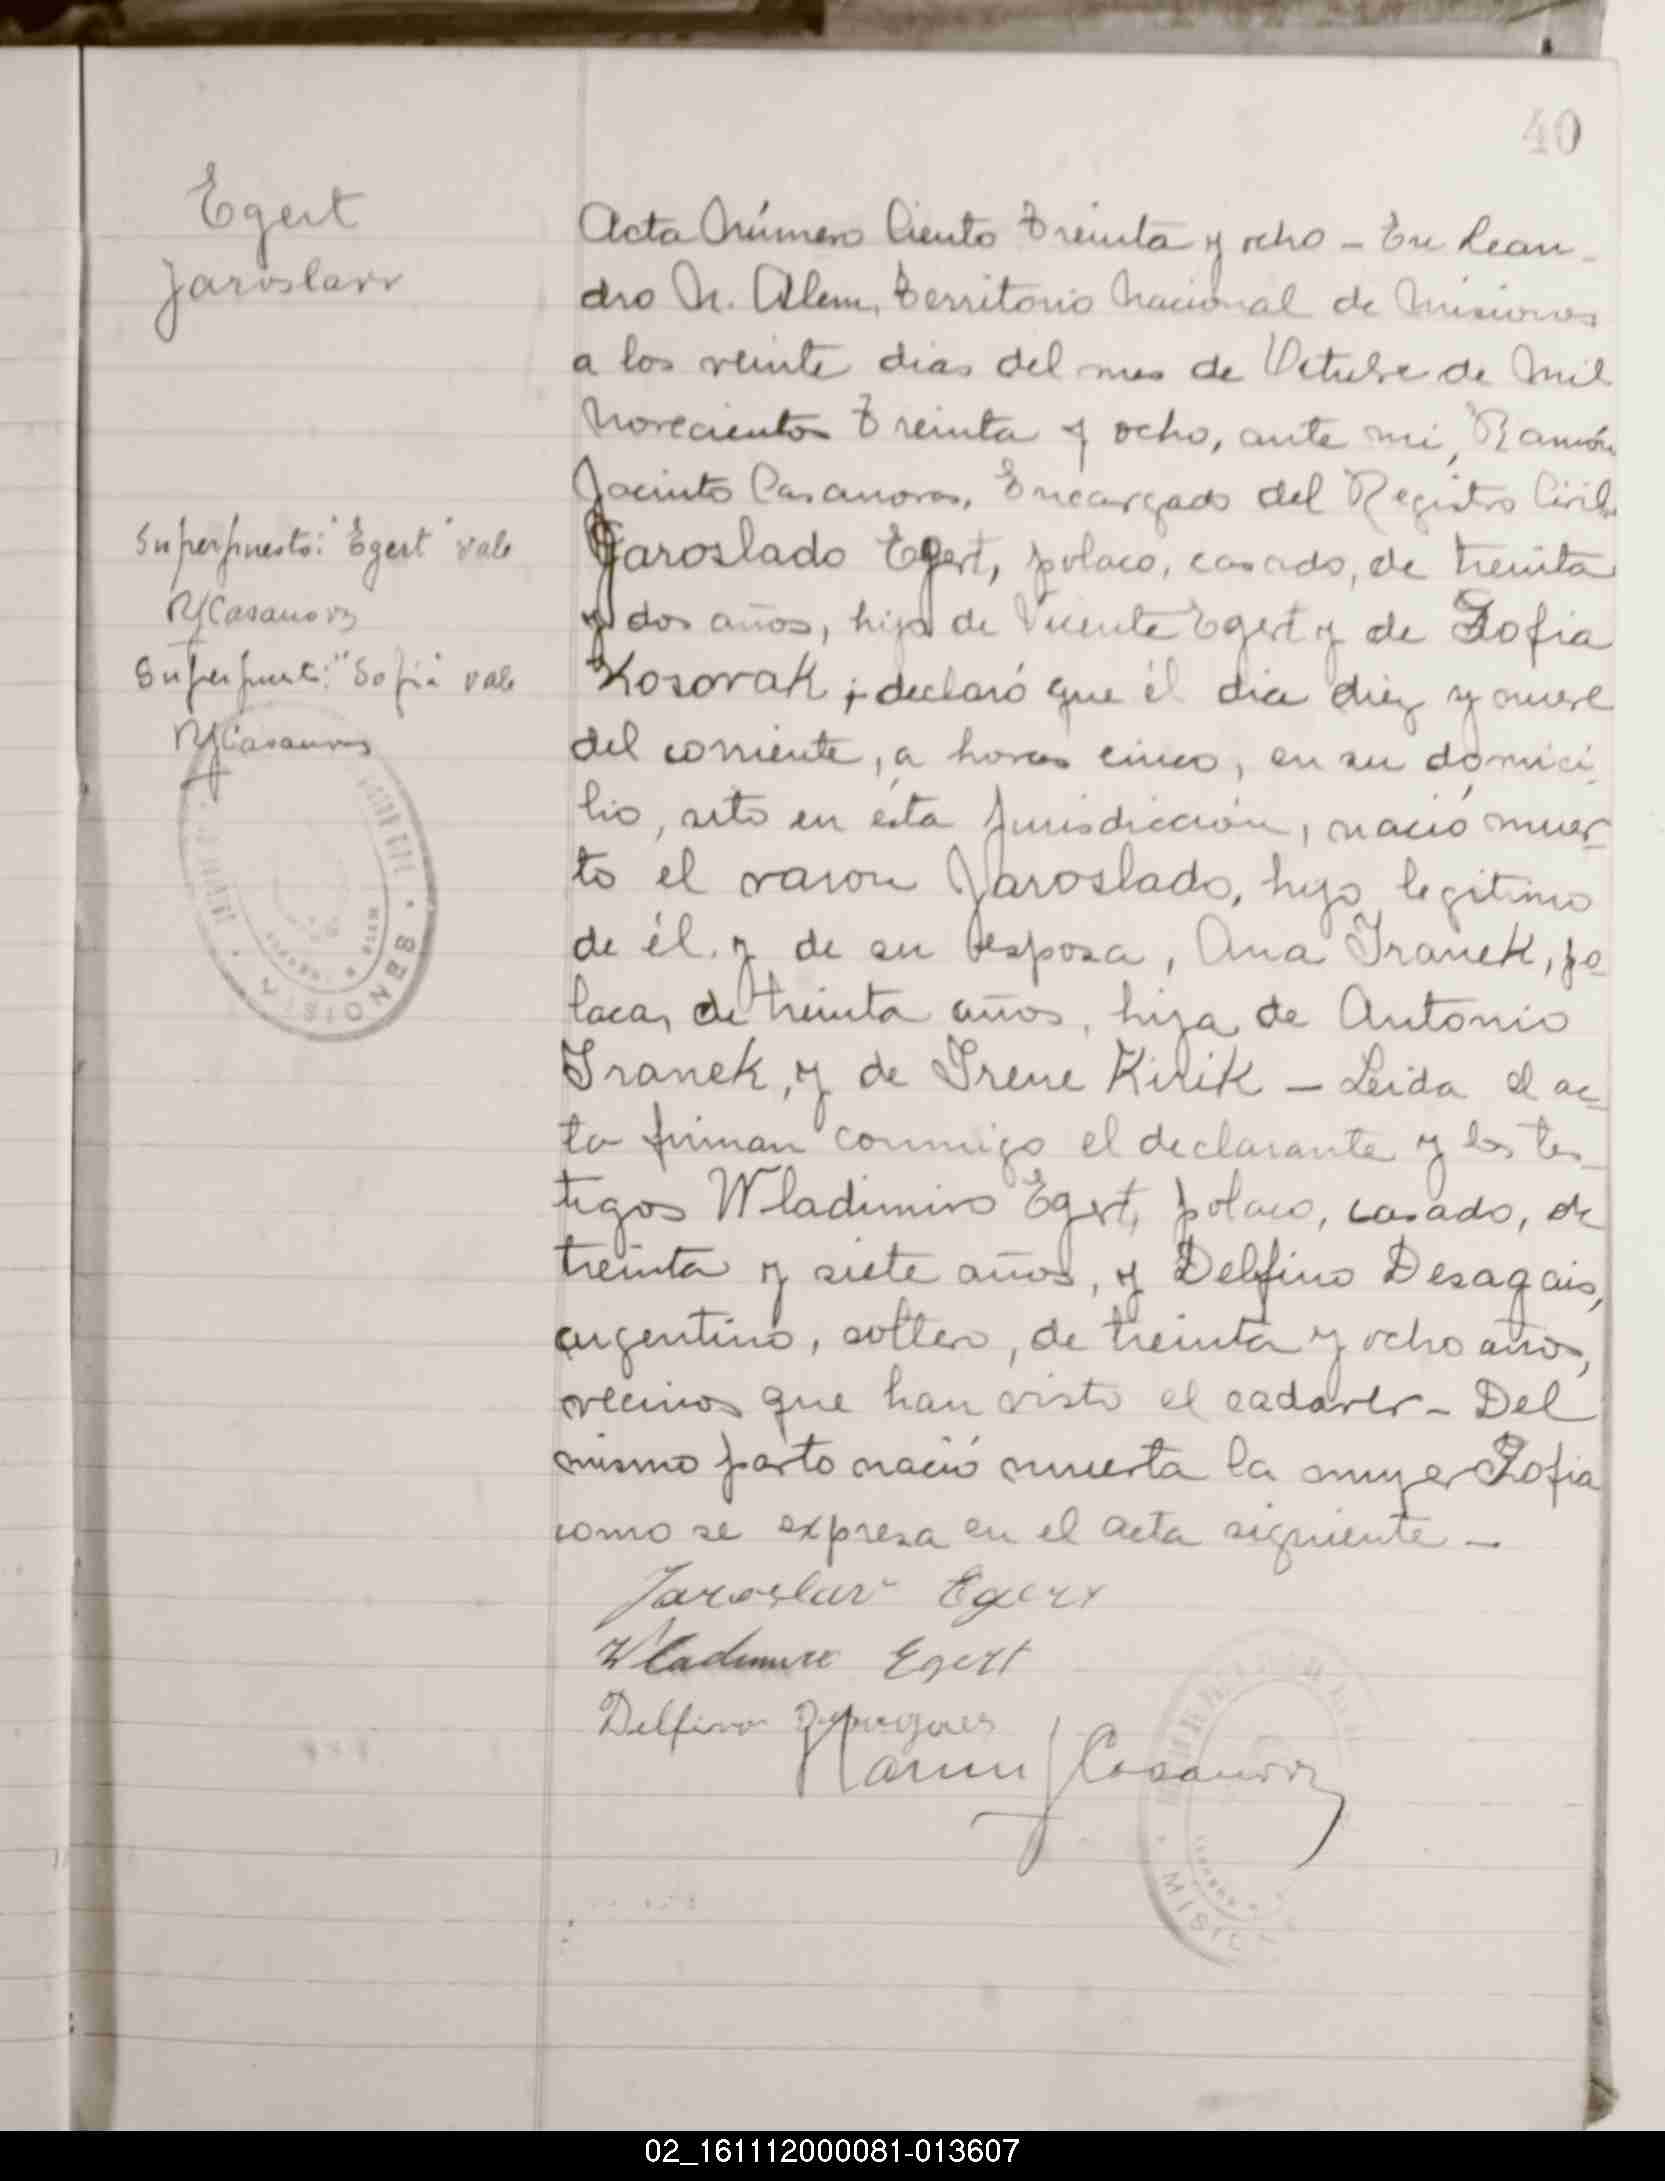 40
Egert
Jaroslavv
Superpuesto: "Egert" vale
RJCasanova
Superpuesto: "Sofia" vale
RJCasanova
MISIONES
Acta Número Ciento treinta y ocho – En Lean-
dro N. Alem, territorio Nacional de Misiones
a los veinte dias del mes de Octubre de Mil
Novecientos treinta y ocho, ante mi, Ramón
Jacinto Casanova, Encargado del Registro Civil,
Jaroslado Egert, polaco, casado, de treinta
y dos años, hijo de Vicente Egert y de Sofia
Kosovak; declaró que él dia diez y nueve
del corriente, a horas cinco, en su domici-
lio, sito en ésta jurisdicción, nació muer-
to el varon Jaroslado, hijo legitimo
de él. y de su esposa, Ana Franek, po-
laca, de treinta años, hija de Antonio
Franek, y de Irene Kirik – Leida el ac-
ta firman conmigo el declarante y los tes-
tigos Wladimiro Egert, polaco, casado, de
treinta y siete años, y Delfino Desagais,
argentino, soltero, de treinta y ocho años,
vecinos que han visto el cadaver – Del
mismo parto nació muerta la mujer Sofia
como se expresa en el acta siguiente –
Jaroslav Egert
Wladimire Egert
Delfino
Ramon J Casanova
MISIO
02_161112000081-013607